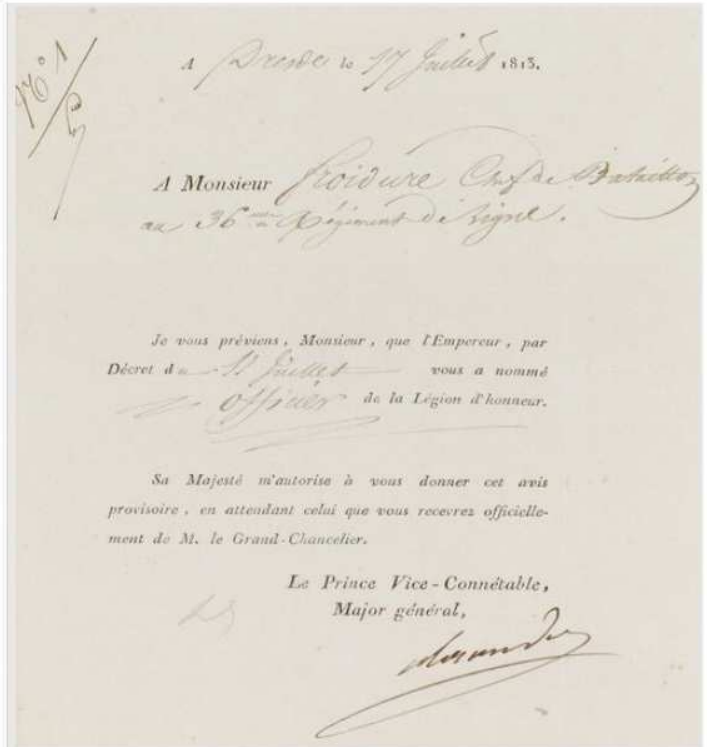 A Dresde le 17 Juillet 1813.
A Monsieur froidure Chef de Bataillon
au 36 me Régiment de Ligne.
Je vous préviens, Monsieur, que l'Empereur, par
Décret du Juillet vous a nommé
officier de la Légion d'honneur.
Sa Majesté m'autorise à vous donner cet avis
provisoire, en attendant celui que vous recevrez officielle-
ment de M. le Grand-Chancelier.
Le Prince Vice-Connétable,
Major général,